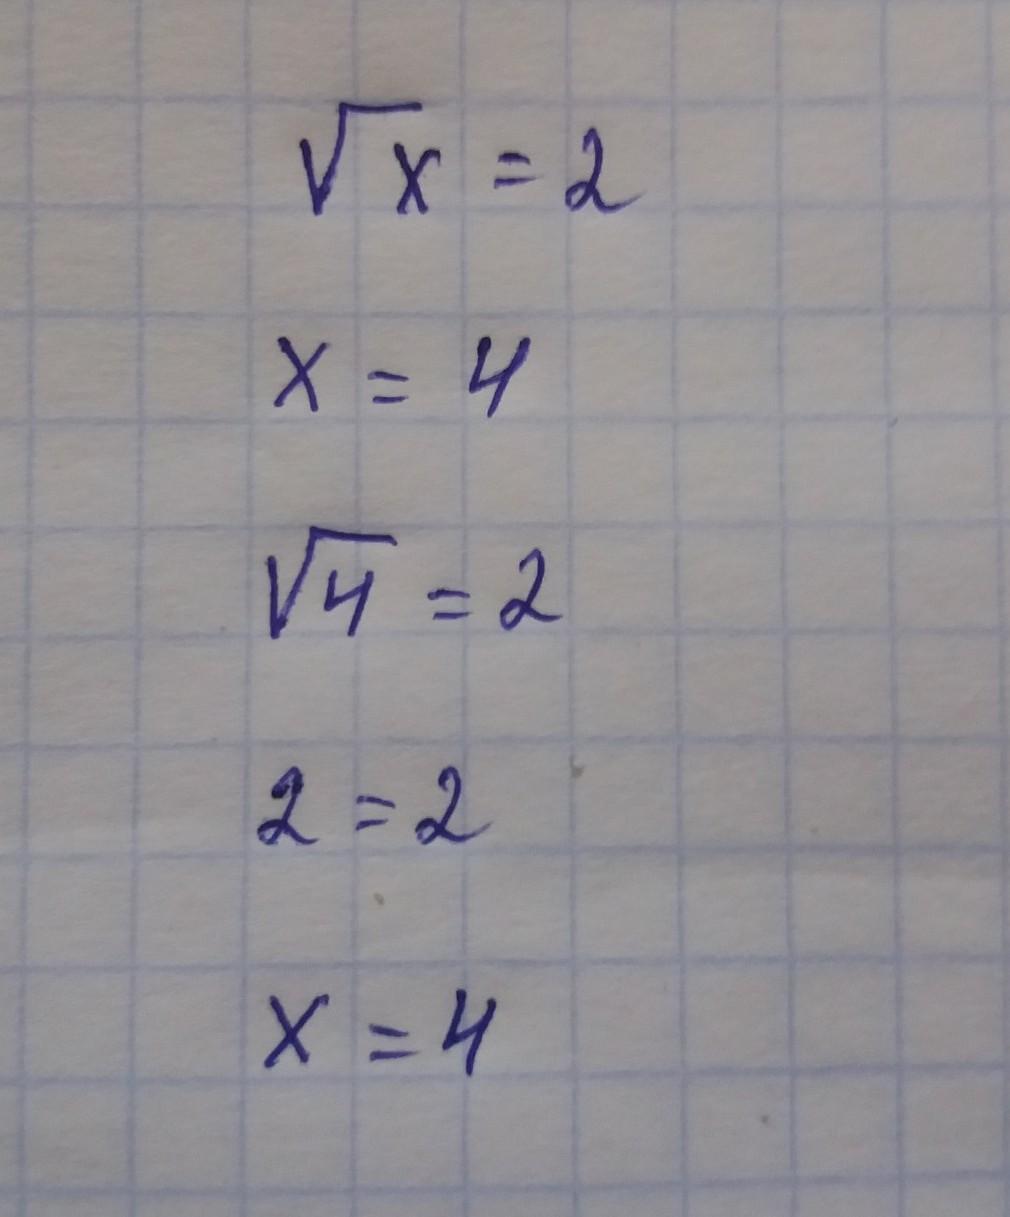 √x = 2
x = 4
√4 = 2
2 = 2
x = 4